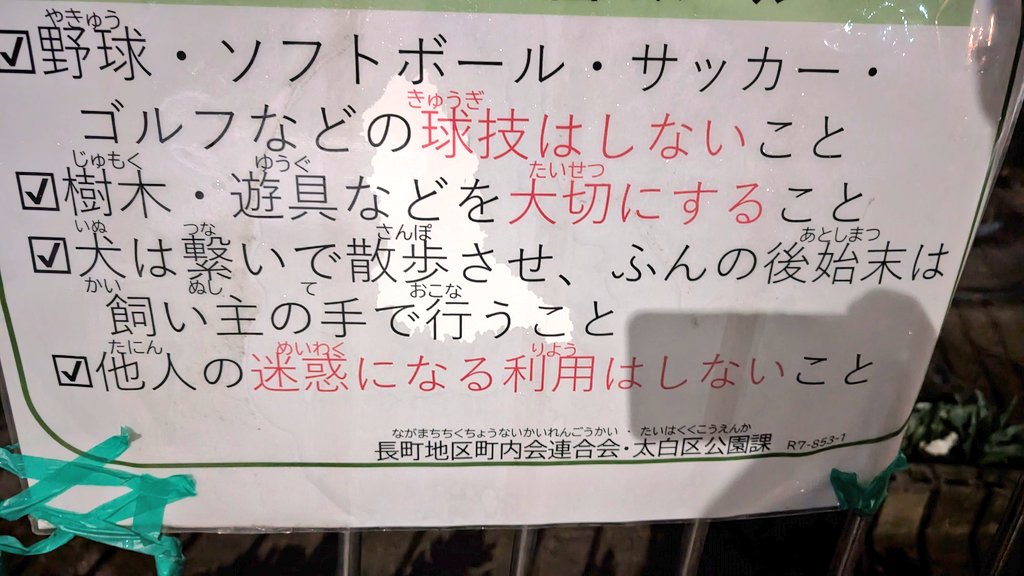 やきゅう
☑野球・ソフトボール・サッカー・
きゅうぎ
ゴルフなどの球技はしないこと
じゅもく ゆうぐ たいせつ
☑樹木・遊具などを大切にすること
いぬ つな さんぽ あとしまつ
☑犬は繋いで散歩させ、ふんの後始末は
かい ぬし て おこな
飼い主の手で行うこと
たにん めいわく りよう
☑他人の迷惑になる利用はしないこと
ながまちちくちょうないかいれんごうかい・たいはくくこうえんか
長町地区町内会連合会・太白区公園課 R7-853-1